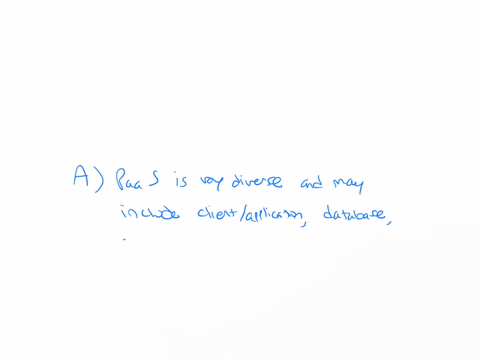 A) PaaS is very diverse and may
include client/application, database,